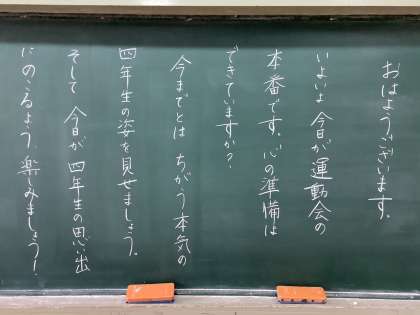 おはようございます。
いよいよ今日が運動会の
本番です。心の準備は
できていますか?
今までとは ちがう本気の
四年生の姿を見せましょう。
そして 今日が 四年生の思い出
にのこるよう、楽しみましょう!